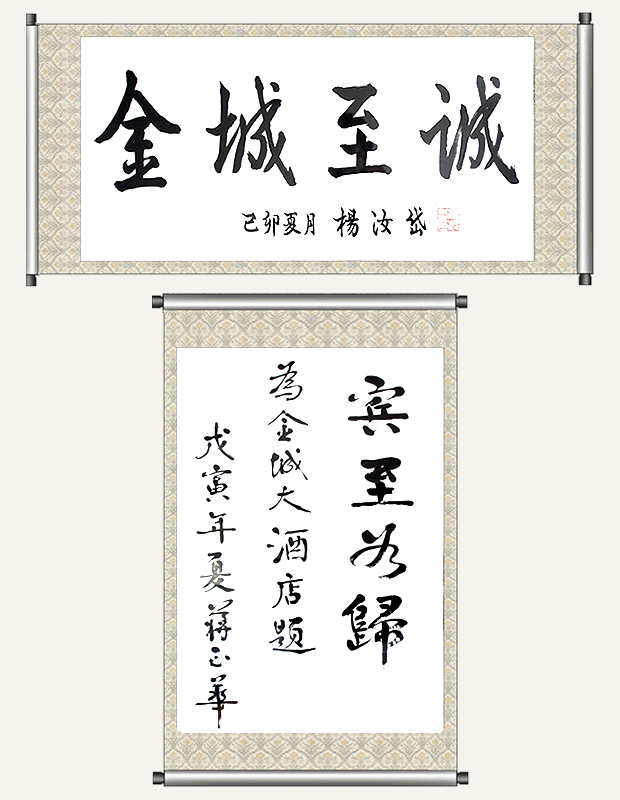 金城至诚
己卯夏月 楊汝岱
宾至如歸
為金城大酒店题
戊寅年夏蒋正華